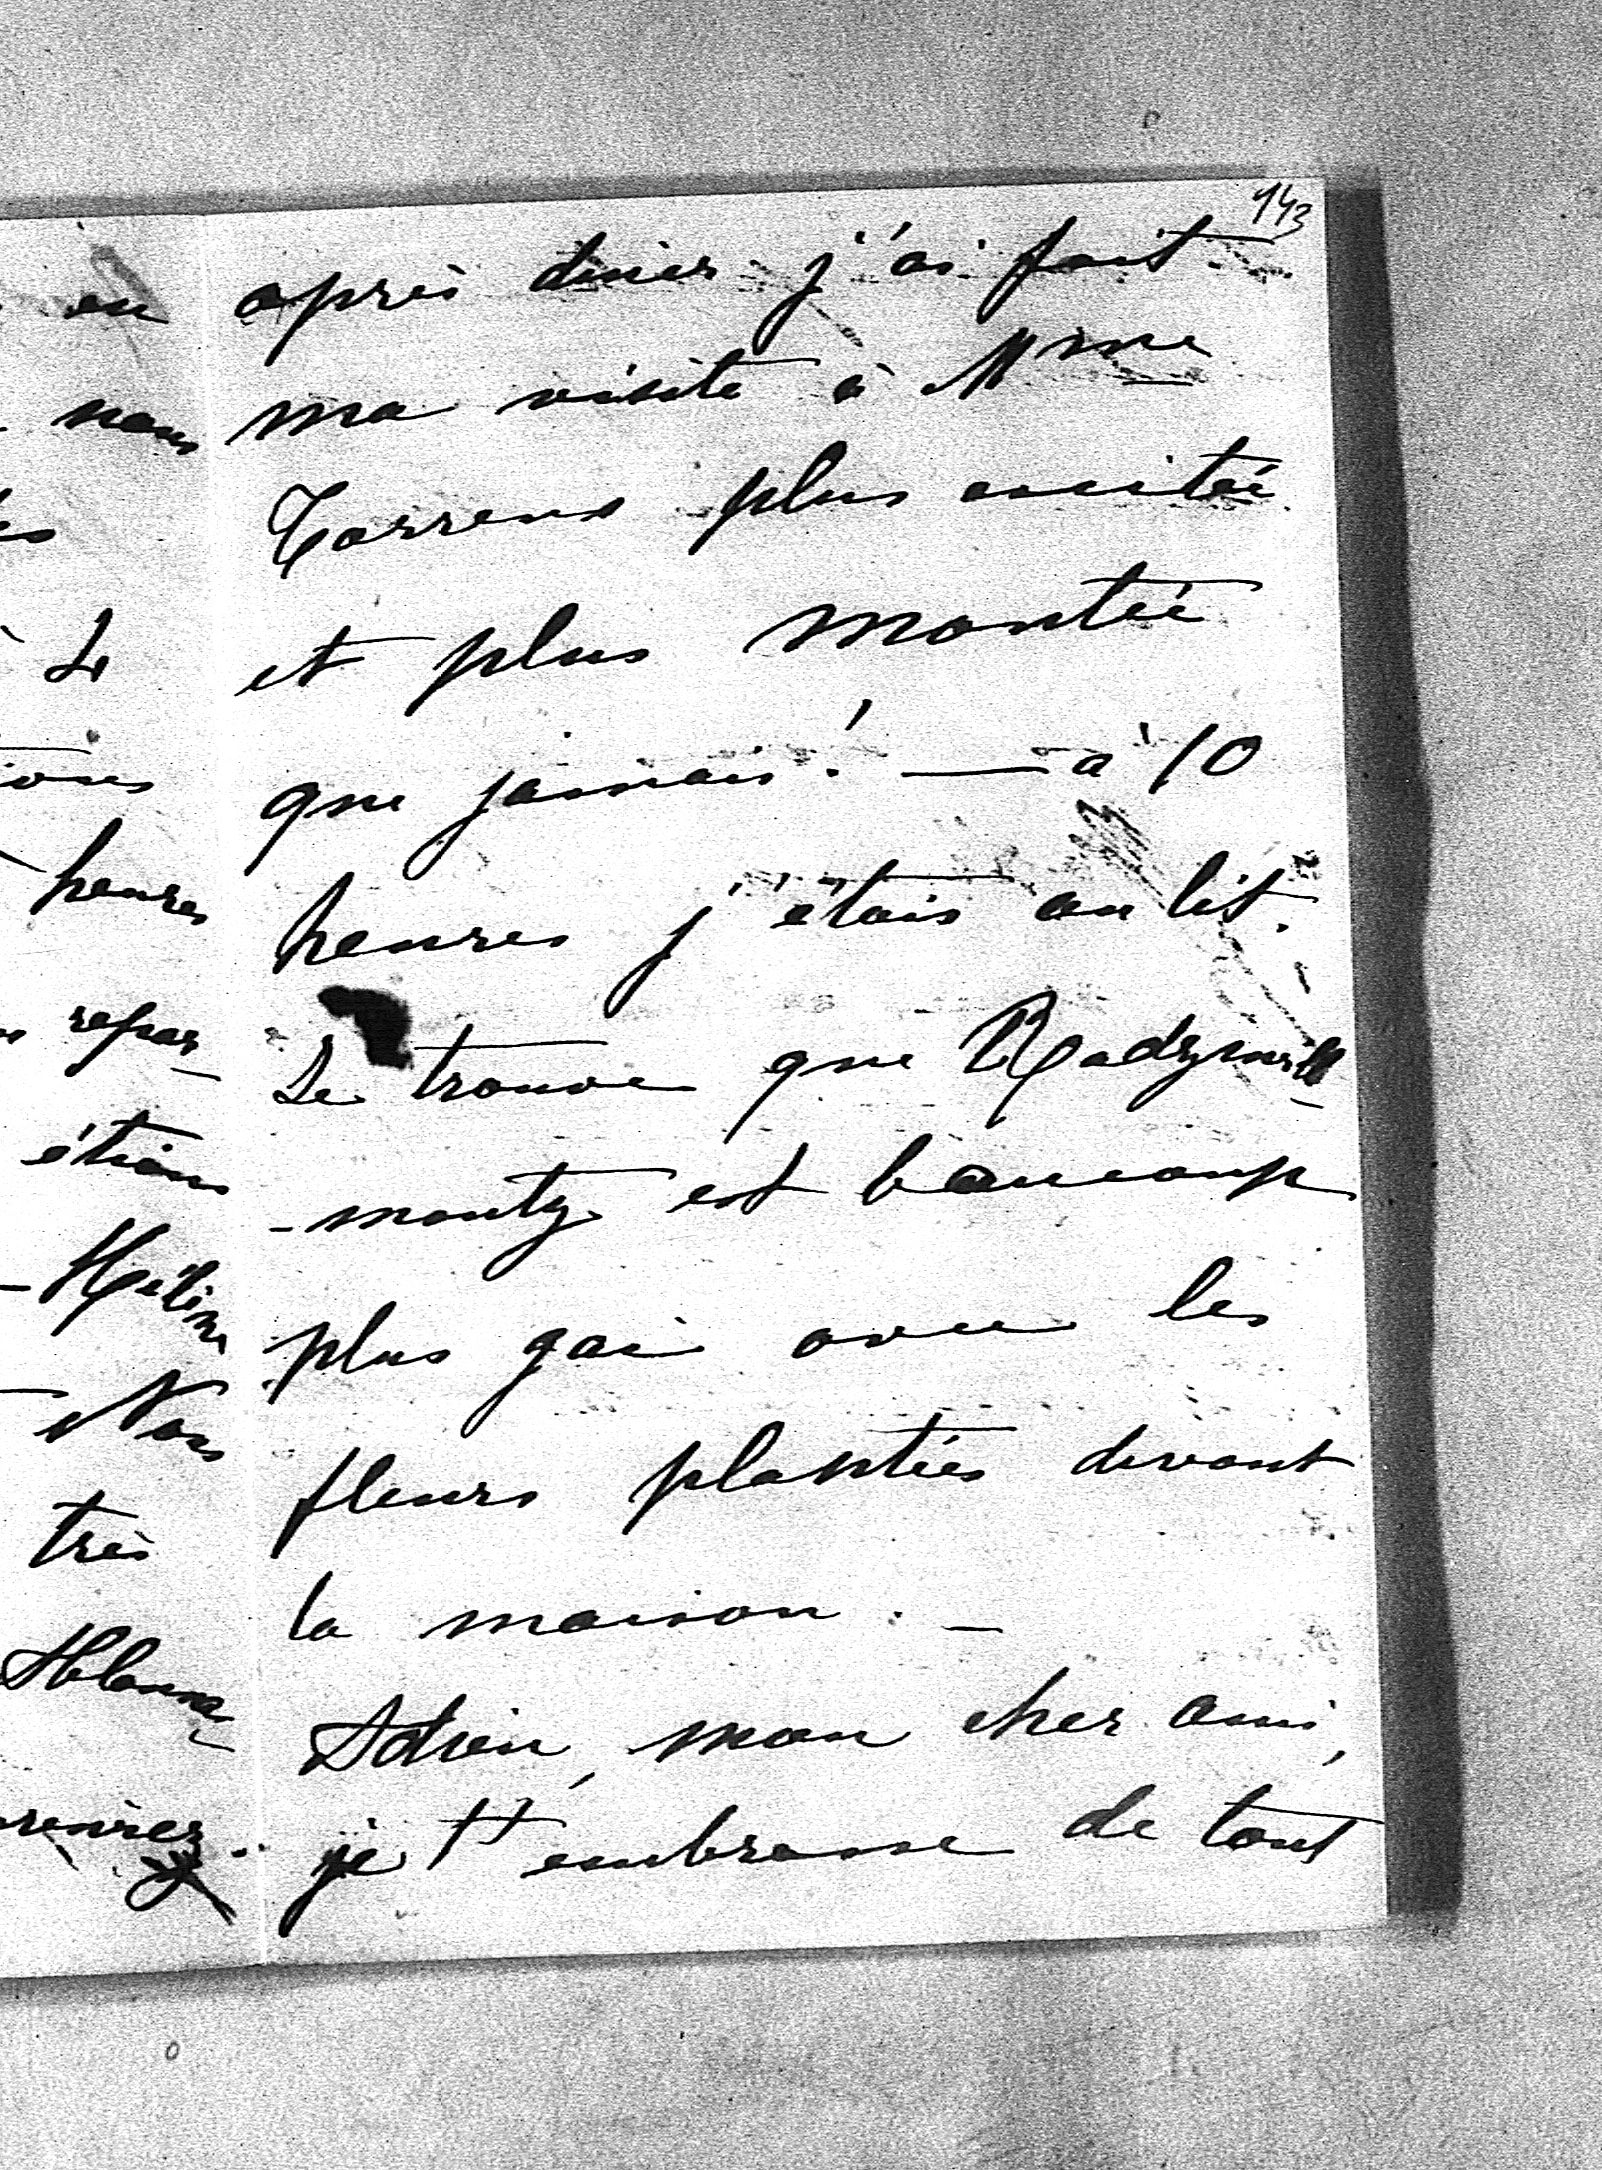 143
après diner j'ai fait
ma visite à Mme
Torrens plus excitée
et plus montée
que jamais! — à 10
heures j'étais au lit.
Je trouve que Radziwill-
-monty est beaucoup
plus gai avec les
fleurs plantées devant
la maison. —
Adieu, mon cher ami,
je t'embrasse de tout
en
nous
à L
heures
repar-
étions
- Hélène
Nous
très